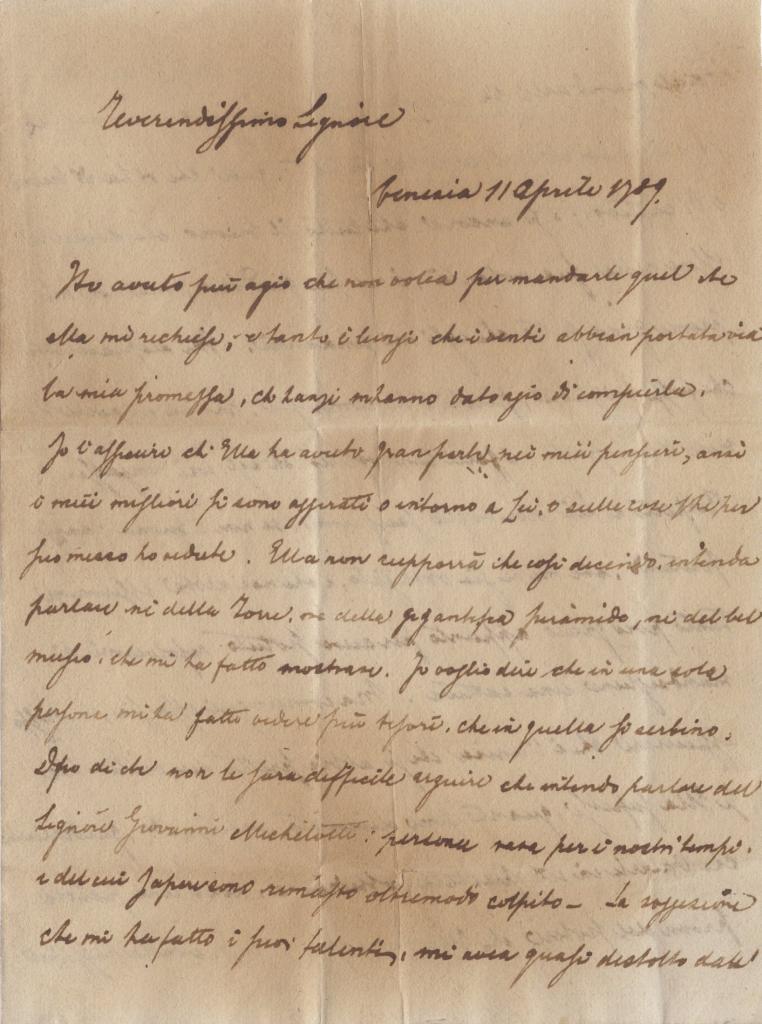 Reverendissimo Signore
Venezia 11 Aprile 1789.
Ho avuto più agio che non volea per mandarle quel che
ella mi richiese, e tanto è lungi che i venti abbian portata via
la mia promessa, ch'anzi m'hanno dato agio di compierla.
Io l'assicuro ch'Ella ha avuto gran parte nei miei pensieri, anzi
i miei migliori si sono aggirati o intorno a Lei, o sulle cose che per
suo mezzo ho vedute. Ella non supporrà che così dicendo, intenda
parlare nè della Torre, nè della gigantesca piramide, nè del bel
museo, che mi ha fatto mostrare. Io voglio dire che in una sola
persona mi ha fatto vedere più tesori, che in quella si serbino.
Dopo di che non le sarà difficile arguire che intendo parlare del
Signore Giovanni Michelotti: persona rara per i nostri tempi,
e del cui sapere sono rimasto oltremodo colpito – La soggezione
che mi ha fatto i suoi talenti, mi avea quasi distolto dall'